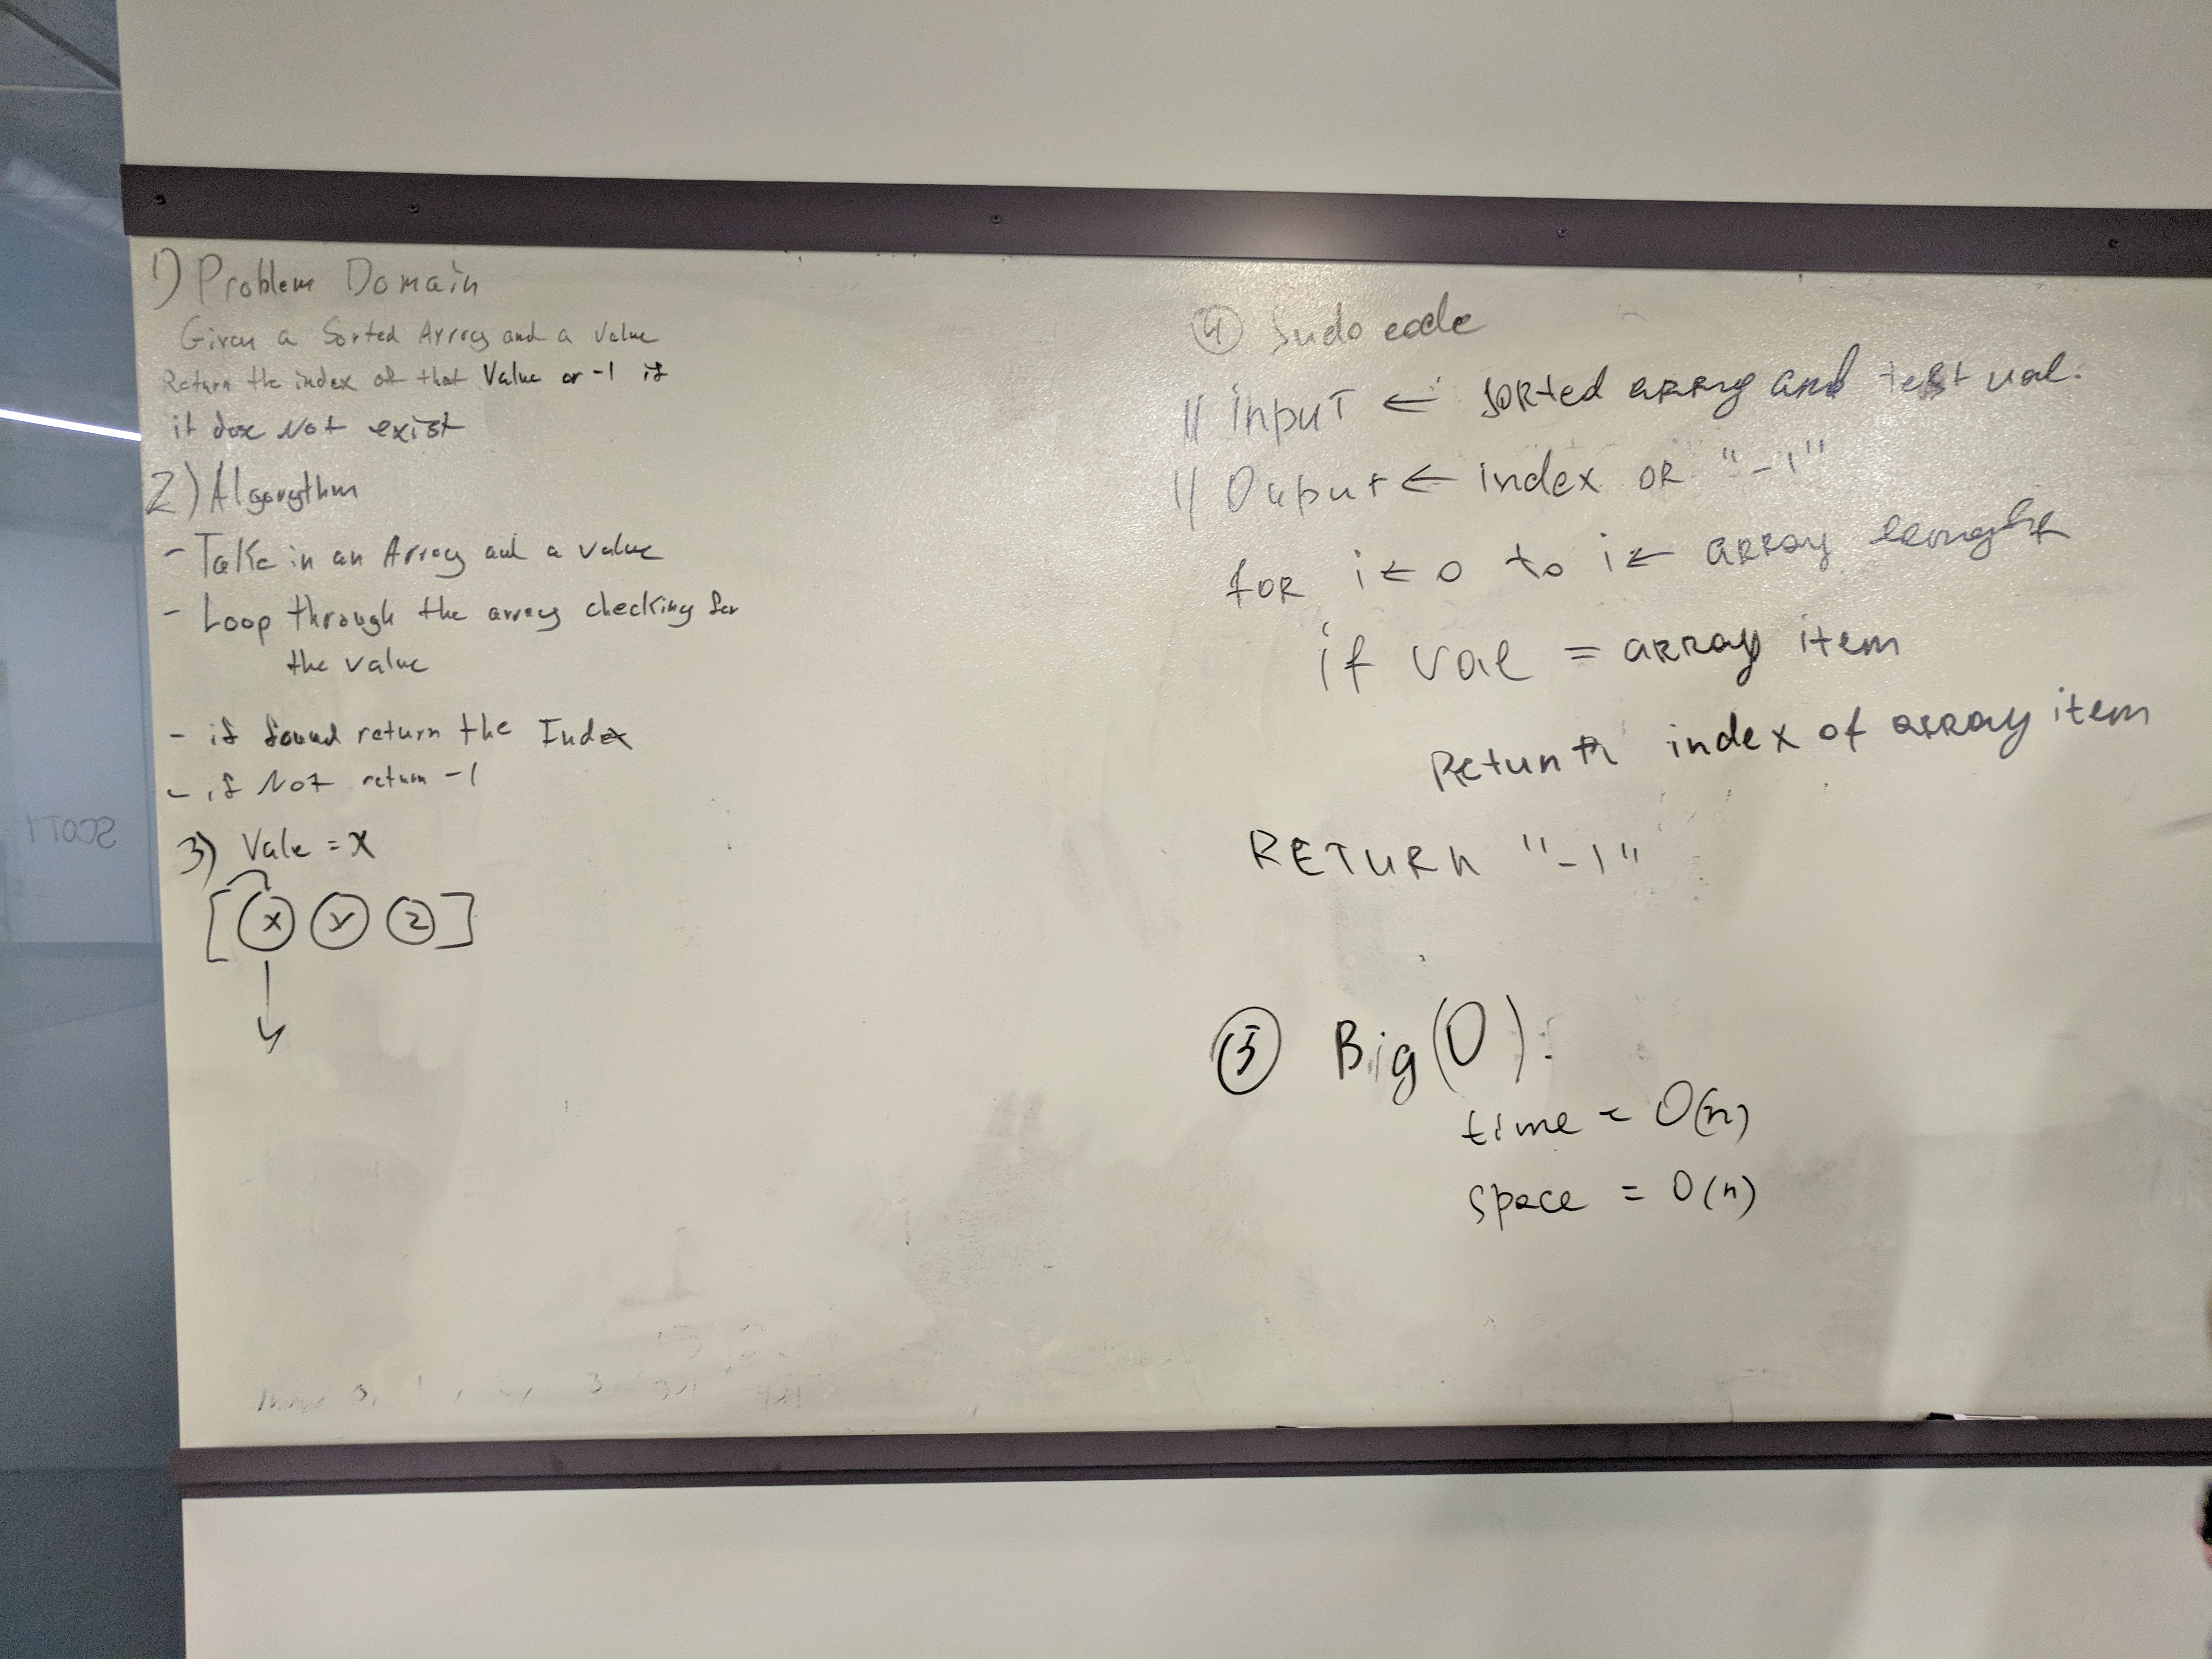 1) Problem Domain
Given a Sorted Array and a value
Return the index of that Value or -1 if
it dose Not exist
2) Algorythm
- Take in an Array and a value
- Loop through the array checking for
the value
- if found return the Index
- if Not return -1
3) Vale = X
[ X Y Z ]
SCOTT
4 Sudo code
// input ← sorted array and test val.
// Ouput ← index OR "-1"
for i ← 0 to i ← array lenght
if val = array item
Return index of array item
RETURN "-1"
5 Big(O):
time = O(n)
space = O(n)